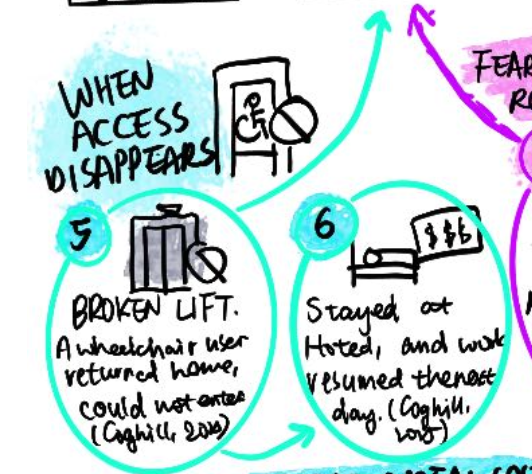 WHEN
ACCESS
DISAPPEARS
5
BROKEN LIFT.
A wheelchair user
returned home,
could not enter
(Coghill,
6
$$$
Stayed at
Hoted, and work
resumed thenext
day. (Coghill,
FEAR